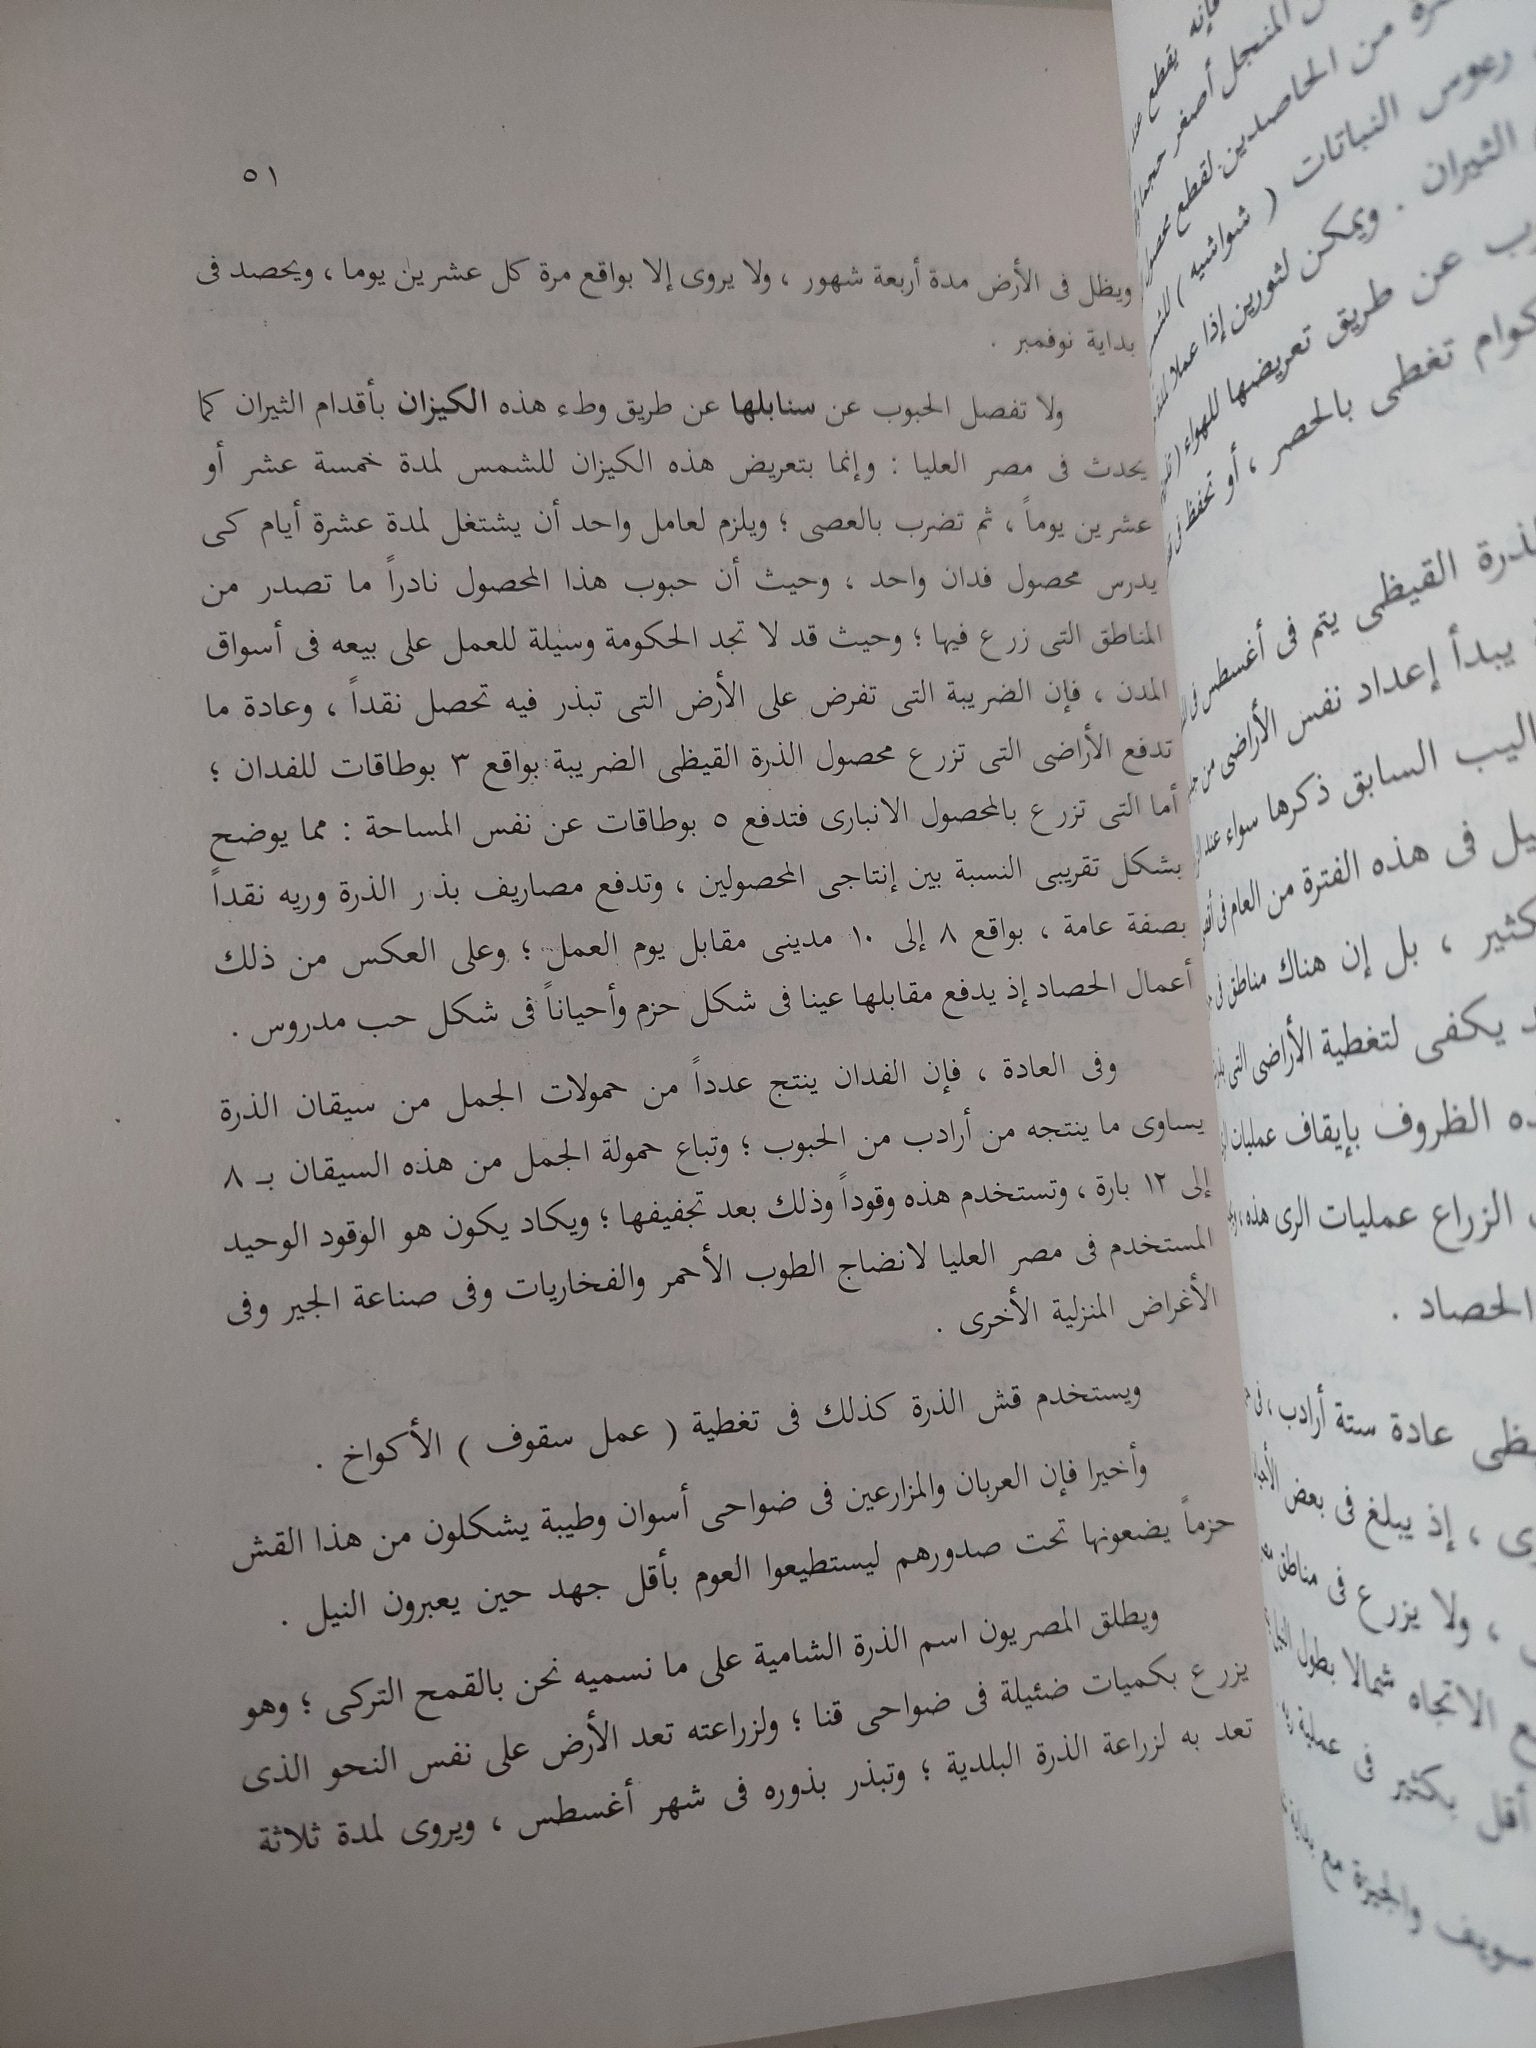 ٥١
ويظل فى الأرض مدة أربعة شهور ، ولا يروى إلا بواقع مرة كل عشرين يوما ، ويحصد فى
بداية نوفمبر .
ولا تفصل الحبوب عن سنابلها عن طريق وطء هذه الكيزان بأقدام الثيران كما
يحدث فى مصر العليا : وإنما بتعريض هذه الكيزان للشمس لمدة خمسة عشر أو
عشرين يوماً ، ثم تضرب بالعصى ؛ ويلزم لعامل واحد أن يشتغل لمدة عشرة أيام كى
يدرس محصول فدان واحد ، وحيث أن حبوب هذا المحصول نادراً ما تصدر من
المناطق التى زرع فيها ؛ وحيث قد لا تجد الحكومة وسيلة للعمل على بيعه فى أسواق
المدن ، فإن الضريبة التى تفرض على الأرض التى تبذر فيه تحصل نقداً ، وعادة ما
تدفع الأراضى التى تزرع محصول الذرة القيظى الضريبة بواقع ٣ بوطاقات للفدان ؛
أما التى تزرع بالمحصول الانبارى فتدفع ٥ بوطاقات عن نفس المساحة : مما يوضح
بشكل تقريبى النسبة بين إنتاجى المحصولين ، وتدفع مصاريف بذر الذرة وريه نقداً
بصفة عامة ، بواقع ٨ إلى ١٠ مدينى مقابل يوم العمل ؛ وعلى العكس من ذلك
أعمال الحصاد إذ يدفع مقابلها عينا فى شكل حزم وأحياناً فى شكل حب مدروس .
وفى العادة ، فإن الفدان ينتج عدداً من حمولات الجمل من سيقان الذرة
يساوى ما ينتجه من أرادب من الحبوب ؛ وتباع حمولة الجمل من هذه السيقان بـ ٨
إلى ١٢ بارة ، وتستخدم هذه وقوداً وذلك بعد تجفيفها ؛ ويكاد يكون هو الوقود الوحيد
المستخدم فى مصر العليا لانضاج الطوب الأحمر والفخاريات وفى صناعة الجير وفى
الأغراض المنزلية الأخرى .
ويستخدم قش الذرة كذلك فى تغطية ( عمل سقوف ) الأكواخ .
وأخيرا فإن العربان والمزارعين فى ضواحى أسوان وطيبة يشكلون من هذا القش
حزماً يضعونها تحت صدورهم ليستطيعوا العوم بأقل جهد حين يعبرون النيل .
ويطلق المصريون اسم الذرة الشامية على ما نسميه نحن بالقمح التركى ؛ وهو
يزرع بكميات ضئيلة فى ضواحى قنا ؛ ولزراعته تعد الأرض على نفس النحو الذى
تعد به لزراعة الذرة البلدية ؛ وتبذر بذوره فى شهر أغسطس ، ويروى لمدة ثلاثة
فإنه يقطع
المنجل أصغر
من الحاصدين لقطع
رءوس النباتات ( شواشيه )
الثيران . ويمكن لثورين إذا عملا
عن طريق تعريضها للهواء
تغطى بالحصر ، أو تحفظ فى
القيظى يتم فى أغسطس
يبدأ إعداد نفس الأراضى من
السابق ذكرها سواء عند
فى هذه الفترة من العام فى
، بل إن هناك مناطق فى
يكفى لتغطية الأراضى التى
الظروف بإيقاف عمليات
الزراع عمليات الرى هذه ،
الحصاد .
عادة ستة أرادب ،
، إذ يبلغ فى بعض
، ولا يزرع فى مناطق
الاتجاه شمالا بطول
أقل بكثير فى عملية
والجيزة مع